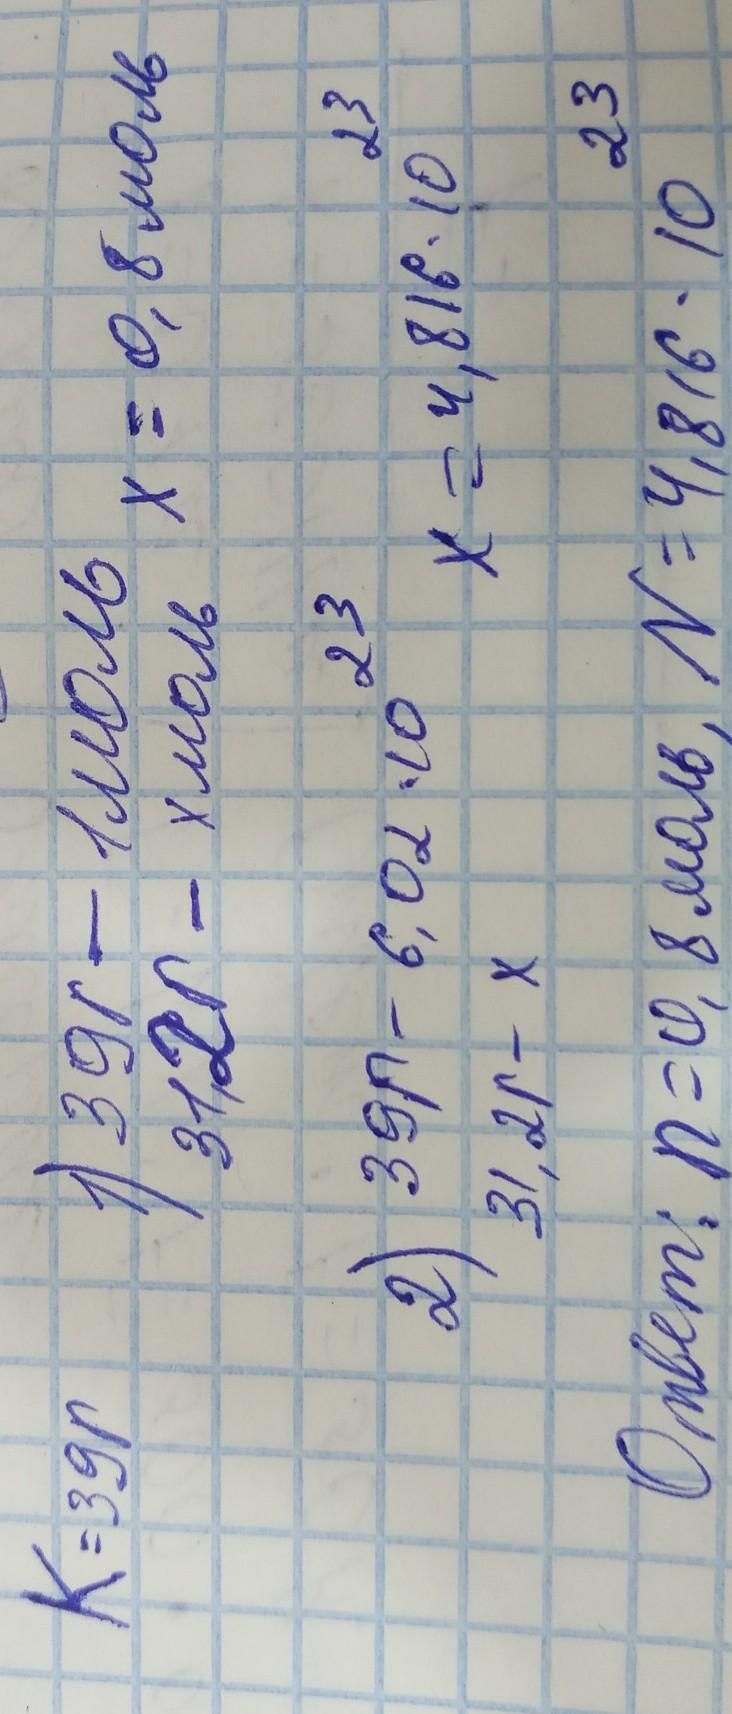 K=39г 1) 39г - 1моль
31,2г - x моль x = 0,8 моль
2) 39г - 6,02·10²³
31,2г - x x = 4,816·10²³
Ответ: n=0,8 моль, N=4,816·10²³